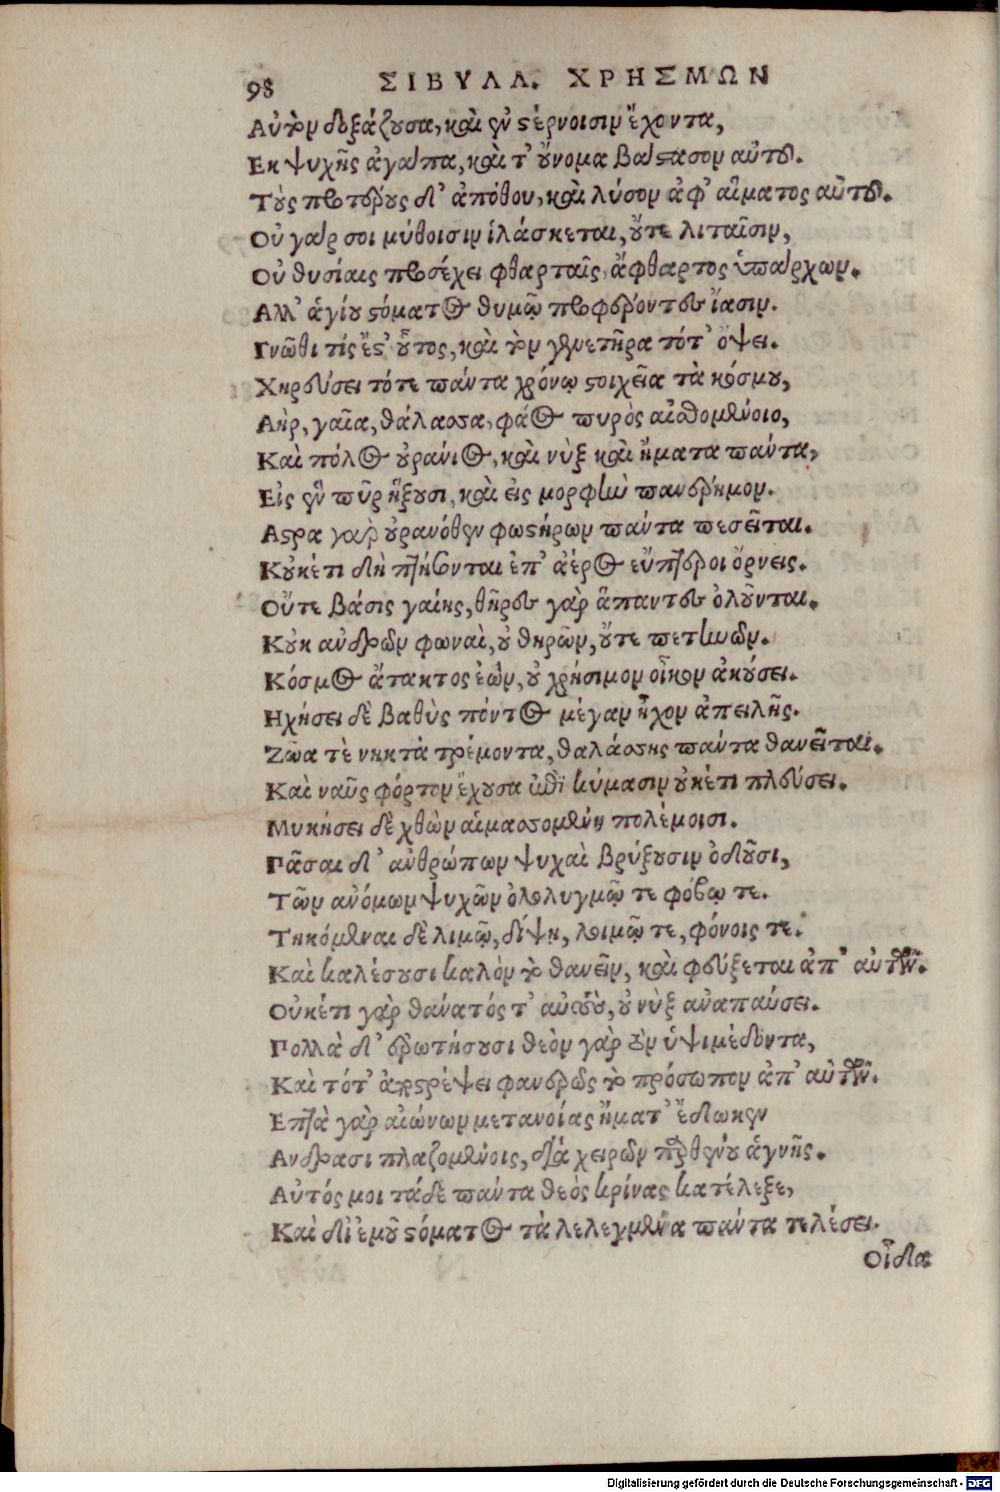 98 ΣΙΒΥΛΛ. ΧΡΗΣΜΩΝ
Αὐτὸν δοξάζουσα, καὶ ἐν στέρνοισιν ἔχοντα,
Εκ ψυχῆς ἀγάπα, καὶ τ' οὔνομα βάστασον αὐτοῦ.
Τοὺς προτέρους δ' ἀπόθου, καὶ λύσον ἀφ' αἵματος αὐτοῦ.
Οὐ γάρ σοι μύθοισιν ἱλάσκεται, οὔτε λιταῖσιν,
Οὐ θυσίαις προσέχει φθαρταῖς, ἄφθαρτος ὑπάρχων.
Αλλ' ἁγίου στόματος θυμῷ προφέροντες ἴασιν.
Γνῶθι τίς ἔστ' οὗτος, καὶ τὸν γενετῆρα τότ' ὄψει.
Χηρεύσει τότε πάντα χρόνῳ στοιχεῖα τὰ κόσμου,
Αὴρ, γαῖα, θάλασσα, φάος πυρὸς αἰθομένοιο,
Καὶ πόλος οὐράνιος, καὶ νὺξ καὶ ἤματα πάντα,
Εἰς ἓν πῦρ ἥξουσι, καὶ εἰς μορφὴν πανέρημον.
Αστρα γὰρ οὐρανόθεν φωστήρων πάντα πεσεῖται.
Κοὐκέτι δὴ πτήσονται ἐπ' ἀέρος εὔπτεροι ὄρνεις.
Οὔτε βάσις γαίης, θῆρες γὰρ ἅπαντες ὀλοῦνται.
Κοὐκ ἀνδρῶν φωναὶ, οὐ θηρῶν, οὔτε πετηνῶν.
Κόσμος ἄτακτος ἐὼν, οὐ χρήσιμον οἶκον ἀκούσει.
Ηχήσει δὲ βαθὺς πόντος μέγαν ἦχον ἀπειλῆς.
Ζῶα τὲ νηκτὰ τρέμοντα, θαλάσσης πάντα θανεῖται.
Καὶ ναῦς φόρτον ἔχουσα ἐπὶ κύμασιν οὐκέτι πλεύσει.
Μυκήσει δὲ χθὼν αἱμασσομένη πολέμοισι.
Πᾶσαι δ' ἀνθρώπων ψυχαὶ βρύξουσιν ὀδοῦσι,
Τῶν ἀνόμων ψυχῶν ὀλολυγμῷ τε φόβῳ τε.
Τηκόμεναι δὲ λιμῷ, δίψῃ, λοιμῷ τε, φόνοις τε.
Καὶ καλέσουσι καλὸν τὸ θανεῖν, καὶ φεύξεται ἀπ' αὐτῶν.
Οὐκέτι γὰρ θάνατός τ' αὐτοὺς, οὐ νὺξ ἀναπαύσει.
Πολλὰ δ' ἐρωτήσουσι θεὸν γὰρ τὸν ὑψιμέδοντα,
Καὶ τότ' ἀποστρέψει φανερῶς τὸ πρόσωπον ἀπ' αὐτῶν.
Επτὰ γὰρ αἰώνων μετανοίας ἤματ' ἔδωκεν
Ανδράσι πλαζομένοις, διὰ χειρῶν παρθένου ἁγνῆς.
Αὐτός μοι τάδε πάντα θεὸς κρίνας κατέλεξε,
Καὶ δι' ἐμοῦ στόματος τὰ λελεγμένα πάντα τελέσει.
Οἶδα
Digitalisierung gefördert durch die Deutsche Forschungsgemeinschaft - DFG